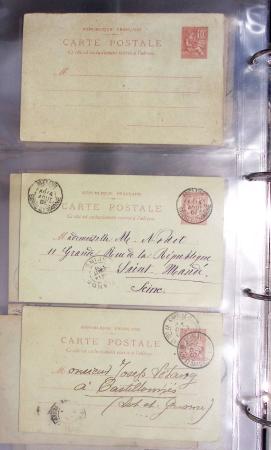 RÉPUBLIQUE FRANÇAISE
CARTE POSTALE
Ce côté est exclusivement réservé à l'adresse.
M
10
RÉPUBLIQUE FRANÇAISE
CARTE POSTALE
Ce côté est exclusivement réservé à l'adresse.
Mademoiselle M. Nodot
11 Grande Rue de la République
Saint-Mandé
Seine
RÉPUBLIQUE FRANÇAISE
CARTE POSTALE
Ce côté est exclusivement réservé à l'adresse.
Monsieur Joseph
à Castillonnès
(Lot et Garonne)